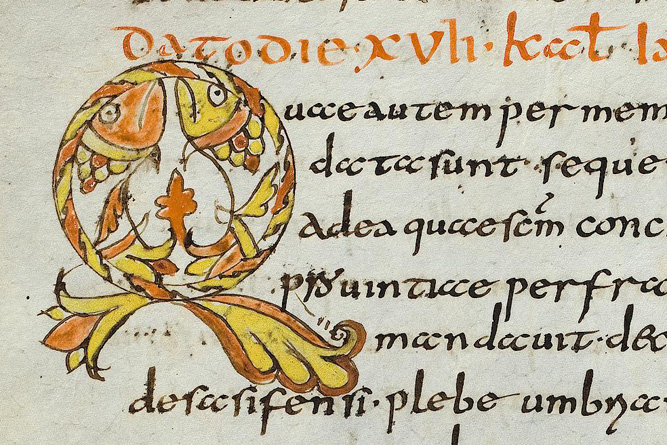 DATO DIE·XVII·kal ia
Quae autem per mem
data sunt seque
Ad ea quae scm conc
uintiae per fra
mandauit·
de sasifensi·plebe umbra